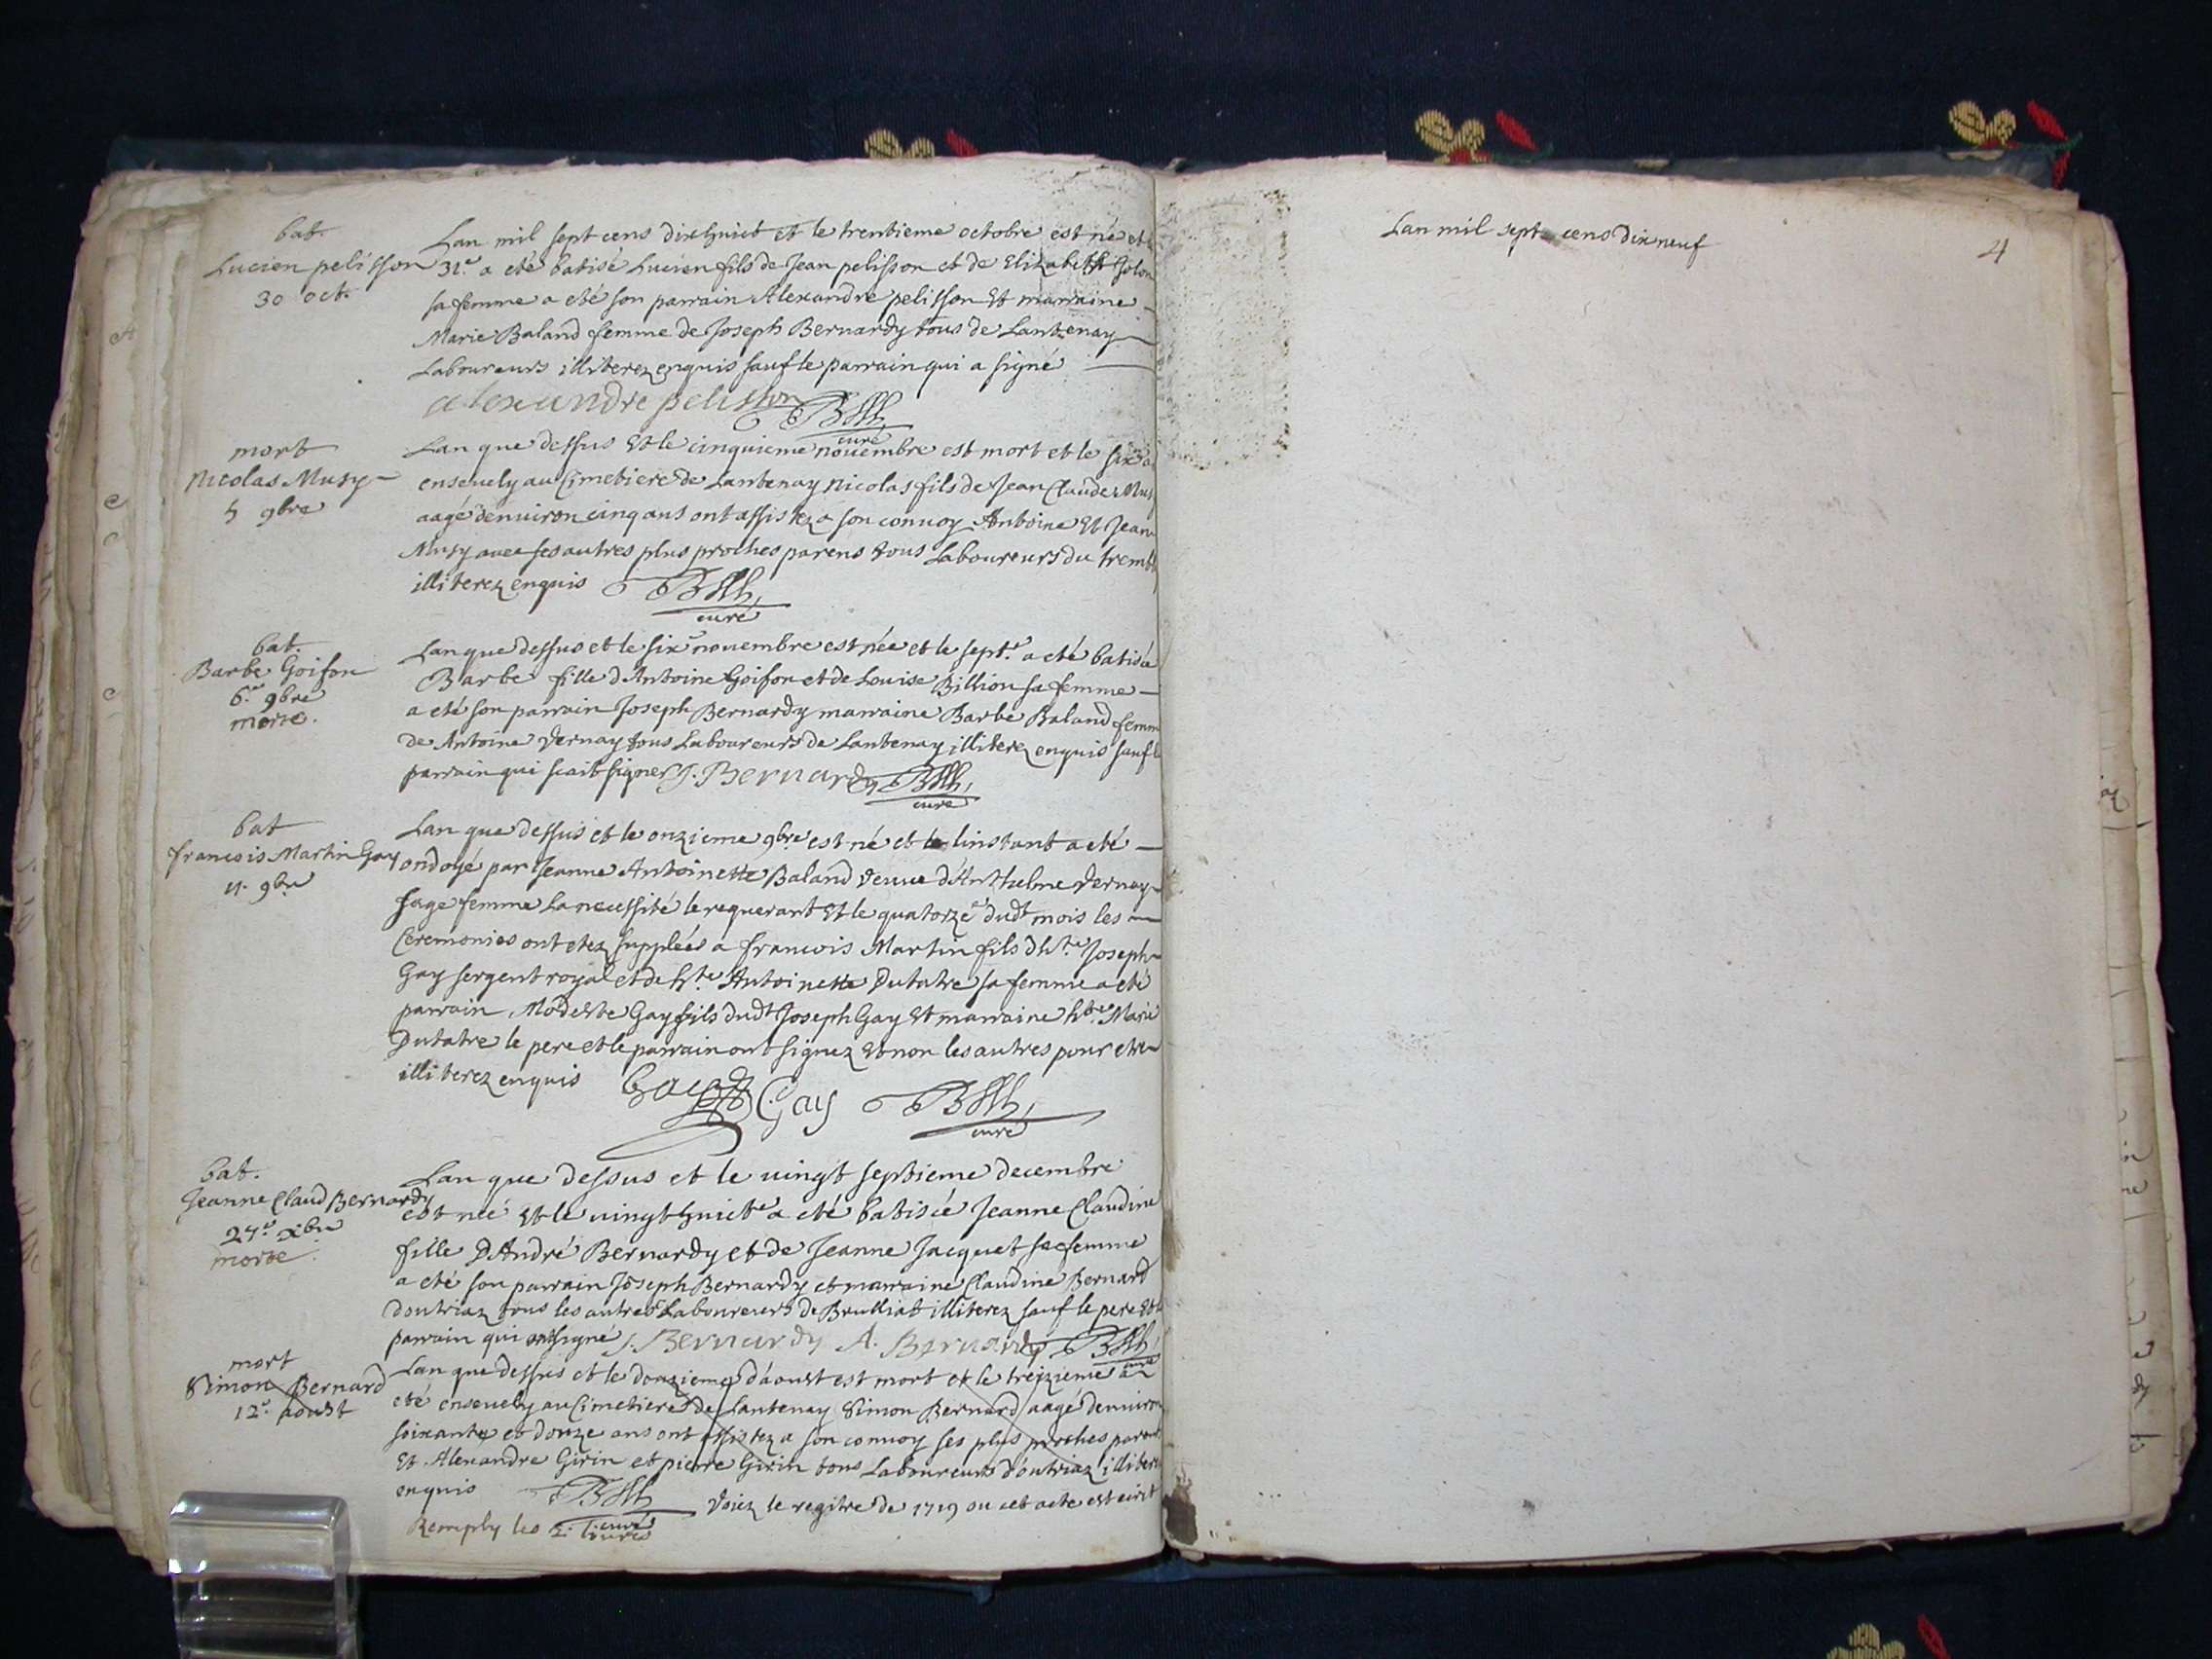 bat.
Lucien pelisson
30 oct.
Lan mil sept cens dixhuict et le trentieme octobre est né et
31.e a eté batisé Lucien fils de Jean pelisson et de Elizabeth Golon
sa femme a eté son parrain Alexandre pelisson Et marraine
Marie Baland femme de Joseph Bernardy tous de Lantenay
Laboureurs illiterez enquis sauf le parrain qui a signé
alexandre pelisson
curé
mort
Nicolas Musy
5 9bre
Lan que dessus Et le cinquieme nouembre est mort et le six.e a
enseuely au Cimetiere de Lantenay Nicolas fils de Jean Claude Musy
aagé denuiron cinq ans ont assistez a son conuoy Antoine Et Jean
Musy auec ses autres plus proches parens tous Laboureurs du trembl
illiterez enquis
curé
bat.
Barbe Goifon
6.e 9bre
morte.
Lan que dessus et le six.e nouembre est née et le sept.e a eté batisée
Barbe fille d'Antoine Goifon et de Louise Billion sa femme
a eté son parrain Joseph Bernardy marraine Barbe Baland femme
de Antoine Vernay tous Laboureurs de Lantenay illiterez enquis sauf le
parrain qui scait signer J. Bernardy
curé
bat
francois Martin Gay
11. 9bre
Lan que dessus et le onzieme 9bre est né et linstant a eté
ondoyé par Jeanne Antoinette Baland veuue d'Anthelme Vernay
sage femme La necessité le requerant Et le quatorze.e dud.t mois les
Ceremonies ont etez supplées a francois Martin fils d'h.te Joseph
Gay sergent royal et de h.te Antoinette Dutatre sa femme a eté
parrain Modeste Gay fils dud.t Joseph Gay Et marraine h.te Marie
Dutatre le pere et le parrain ont signez Et non les autres pour etre
illiterez enquis Gay Gay
curé
bat.
Jeanne Claud Bernardy
27.e Xbre
morte.
Lan que dessus et le uingt septieme decembre
est née Et le uingt huict.e a eté batisée Jeanne Claudine
fille D'André Bernardy et de Jeanne Jacquet sa femme
a eté son parrain Joseph Bernardy et marraine Claudine Bernard
doutriaz tous les autres Laboureurs de Brulliat illiterez sauf le pere Et le
parrain qui ont signé J. Bernardy A. Bernardy
curé
mort
Simon Bernard
12.e aoust
Lan que dessus et le douzieme d'aoust est mort et le treizieme a
eté enseuely au Cimetiere de Lantenay Simon Bernard aagé denuiron
soixante et douze ans ont assistez a son conuoy ses plus proches parens
Et Alexandre Girin et pierre Girin tous Laboureurs d'outriaz illiterez
enquis
curé
Voiez le regitre de 1719 ou cet acte est ecrit
Remply les 2.
Lan mil sept cens dix neuf
4